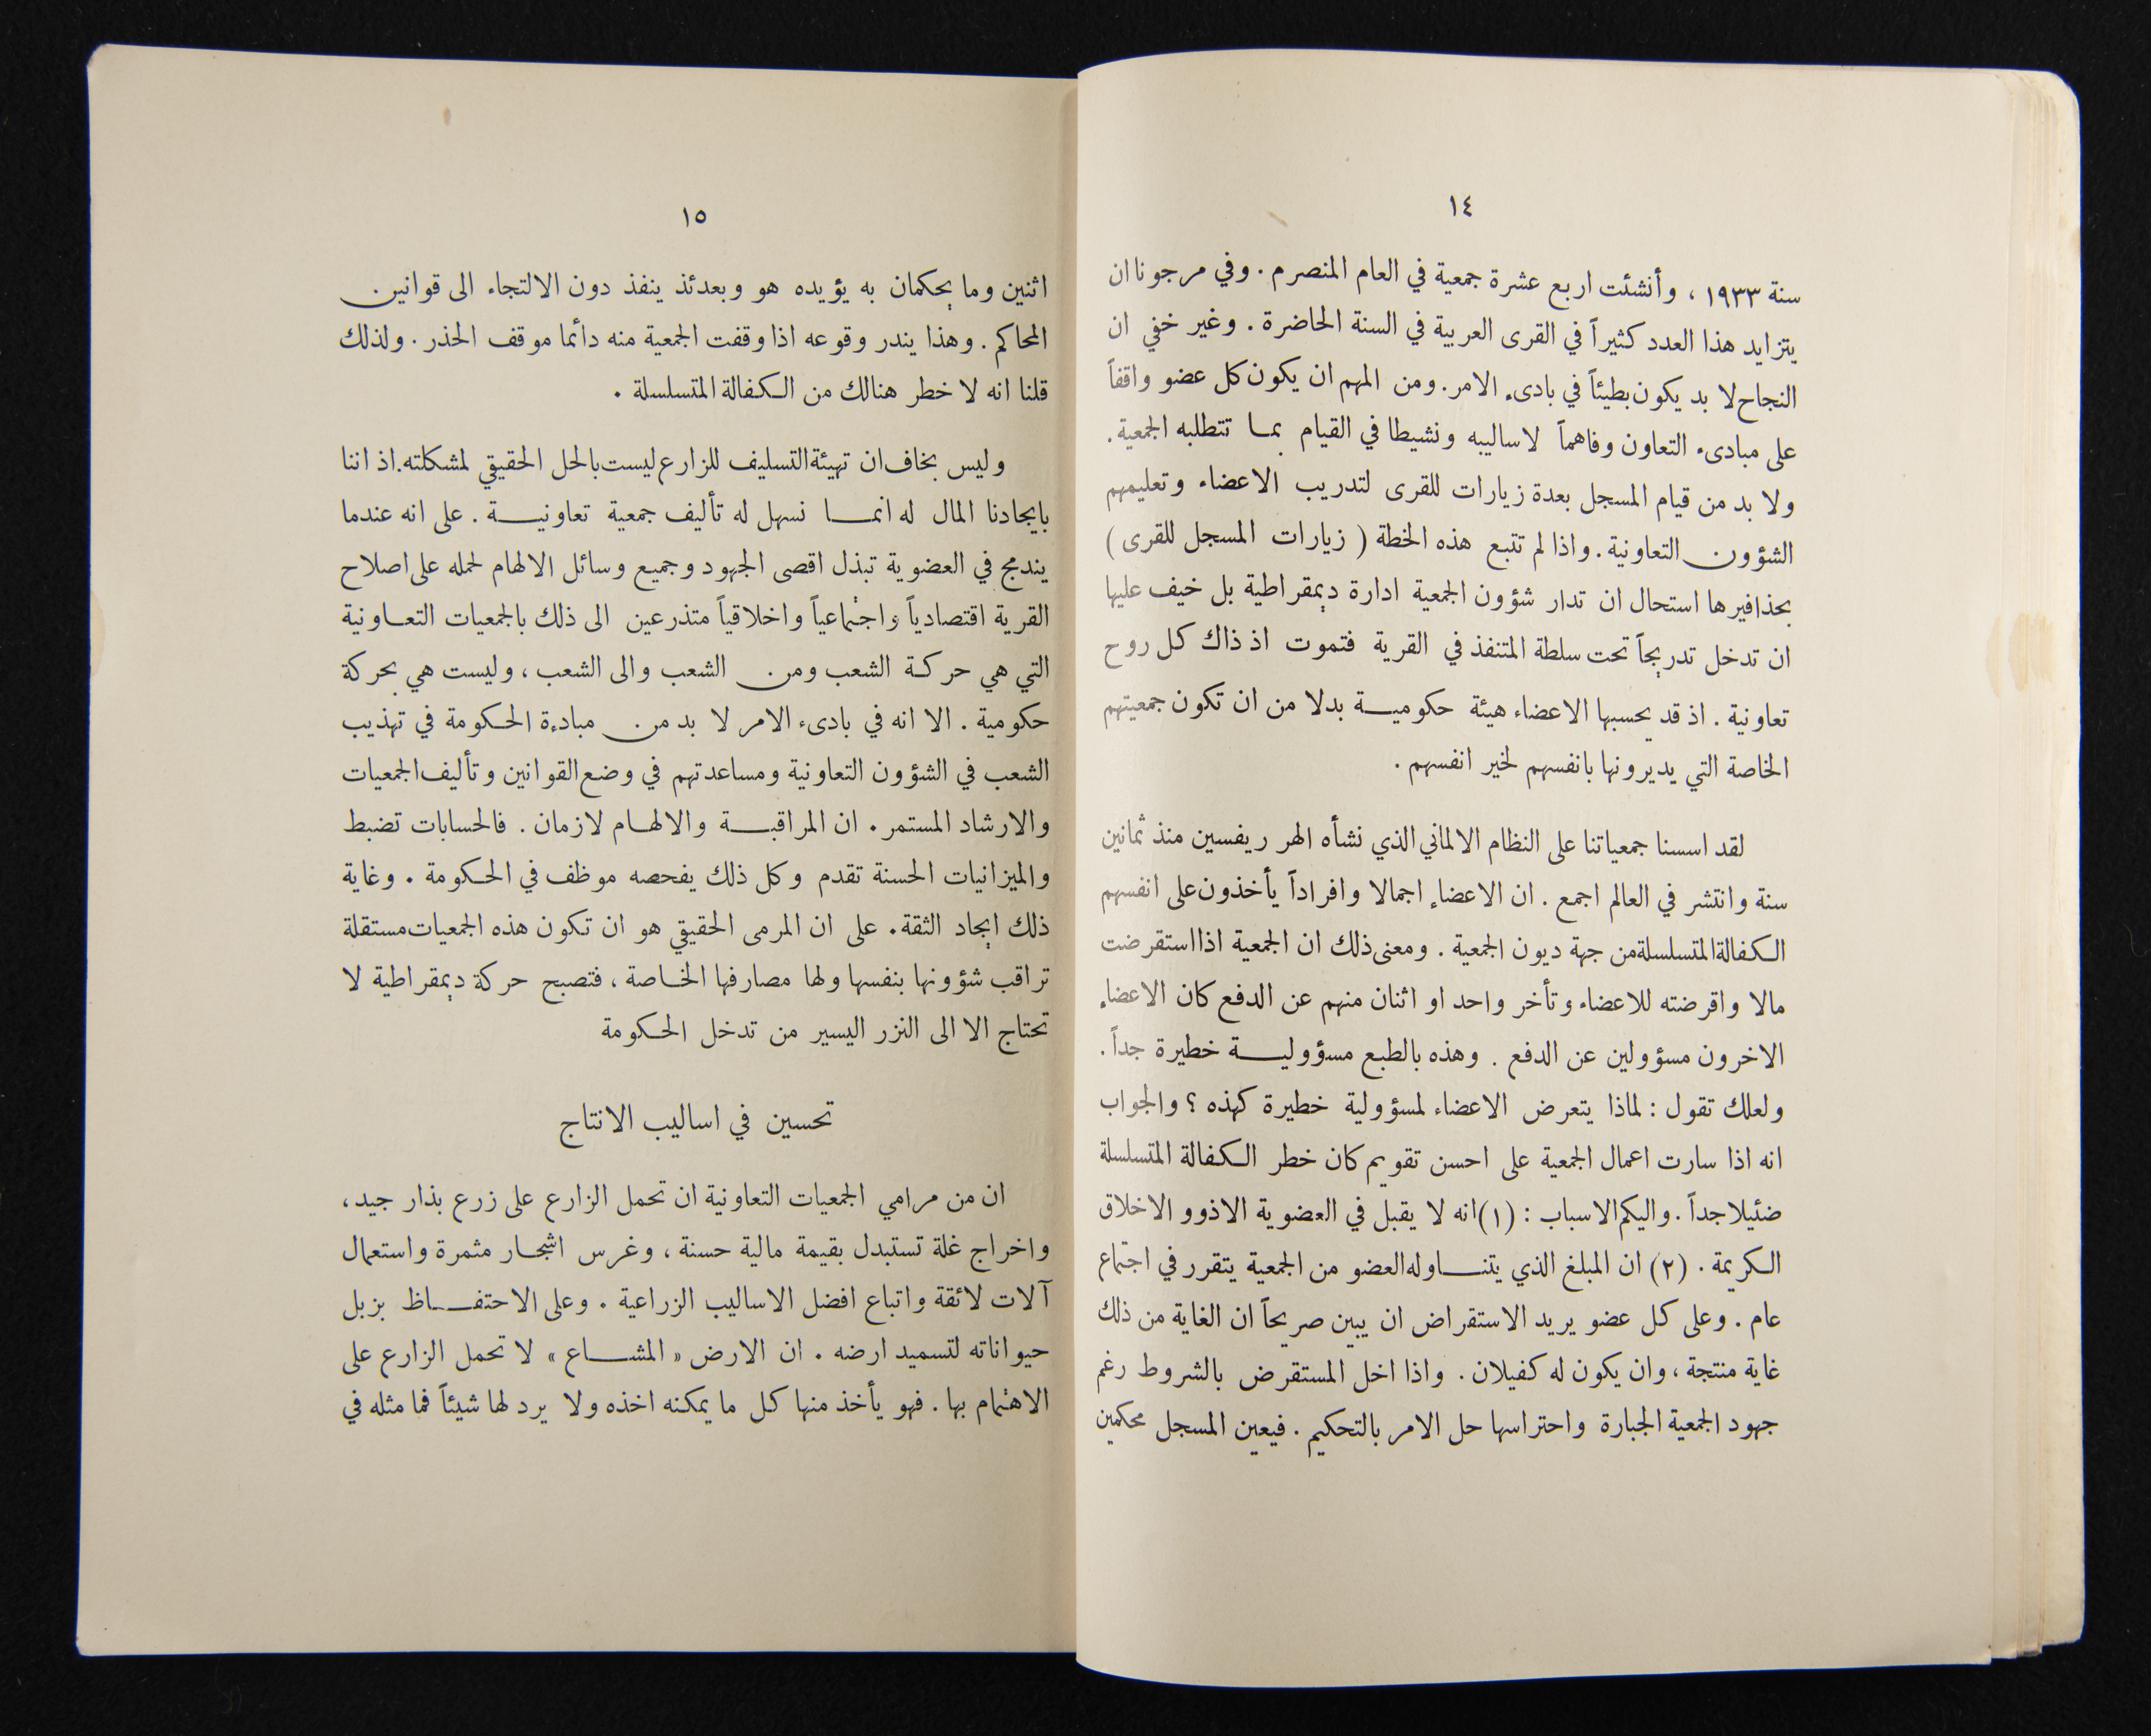 ١٤
سنة ١٩٣٣ ، وأنشئت اربع عشرة جمعية في العام المنصرم . وفي مرجونا ان
يتزايد هذا العدد كثيراً في القرى العربية في السنة الحاضرة . وغير خفي ان
النجاح لا بد يكون بطيئاً في بادىء الامر . ومن المهم ان يكون كل عضو واقفاً
على مبادىء التعاون وفاهماً لاساليبه ونشيطا في القيام بمـا تتطلبه الجمعية .
ولا بد من قيام المسجل بعدة زيارات للقرى لتدريب الاعضاء وتعليمهم
الشؤون التعاونية . واذا لم تتبع هذه الخطة ( زيارات المسجل للقرى )
بحذافيرها استحال ان تدار شؤون الجمعية ادارة ديمقراطية بل خيف عليها
ان تدخل تدريجاً تحت سلطة المتنفذ في القرية فتموت اذ ذاك كل روح
تعاونية . اذ قد يحسبها الاعضاء هيئة حكوميـة بدلا من ان تكون جمعيتهم
الخاصة التي يديرونها بانفسهم لخير انفسهم .
لقد اسسنا جمعياتنا على النظام الالماني الذي نشأه الهر ريفسين منذ ثمانين
سنة وانتشر في العالم اجمع . ان الاعضاء اجمالا وافراداً يأخذون على انفسهم
الكفالة المتسلسلة من جهة ديون الجمعية . ومعنى ذلك ان الجمعية اذا استقرضت
مالا واقرضته للاعضاء وتأخر واحد او اثنان منهم عن الدفع كان الاعضاء
الاخرون مسؤولين عن الدفع . وهذه بالطبع مسؤوليـة خطيرة جداً .
ولعلك تقول : لماذا يتعرض الاعضاء لمسؤولية خطيرة كهذه ؟ والجواب
انه اذا سارت اعمال الجمعية على احسن تقويم كان خطر الكفالة المتسلسلة
ضئيلا جداً . واليكم الاسباب : (١) انه لا يقبل في العضوية الا ذوو الاخلاق
الكريمة . (٢) ان المبلغ الذي يتنـاوله العضو من الجمعية يتقرر في اجتماع
عام . وعلى كل عضو يريد الاستقراض ان يبين صريحاً ان الغاية من ذلك
غاية منتجة ، وان يكون له كفيلان . واذا اخل المستقرض بالشروط رغم
جهود الجمعية الجبارة واحتراسها حل الامر بالتحكيم . فيعين المسجل محكمين
١٥
اثنين وما يحكمان به يؤيده هو وبعدئذ ينفذ دون الالتجاء الى قوانين
المحاكم . وهذا يندر وقوعه اذا وقفت الجمعية منه دائما موقف الحذر . ولذلك
قلنا انه لا خطر هنالك من الكفالة المتسلسلة .
وليس بخاف ان تهيئة التسليف للزارع ليست بالحل الحقيقي لمشكلته . اذ اننا
بايجادنا المال له انمـا نسهل له تأليف جمعية تعاونيـة . على انه عندما
يندمج في العضوية تبذل اقصى الجهود وجميع وسائل الالهام لحمله على اصلاح
القرية اقتصادياً واجتماعياً واخلاقياً متذرعين الى ذلك بالجمعيات التعـاونية
التي هي حركة الشعب ومن الشعب والى الشعب ، وليست هي بحركة
حكومية . الا انه في بادىء الامر لا بد من مبادءة الحكومة في تهذيب
الشعب في الشؤون التعاونية ومساعدتهم في وضع القوانين وتأليف الجمعيات
والارشاد المستمر . ان المراقبـة والالهـام لازمان . فالحسابات تضبط
والميزانيات الحسنة تقدم وكل ذلك يفحصه موظف في الحكومة . وغاية
ذلك ايجاد الثقة . على ان المرمى الحقيقي هو ان تكون هذه الجمعيات مستقلة
تراقب شؤونها بنفسها ولها مصارفها الخـاصة ، فتصبح حركة ديمقراطية لا
تحتاج الا الى النزر اليسير من تدخل الحكومة
تحسين في اساليب الانتاج
ان من مرامي الجمعيات التعاونية ان تحمل الزارع على زرع بذار جيد ،
واخراج غلة تستبدل بقيمة مالية حسنة ، وغرس اشجـار مثمرة واستعمال
آلات لائقة واتباع افضل الاساليب الزراعية . وعلى الاحتفـاظ بزبل
حيواناته لتسميد ارضه . ان الارض « المشـاع » لا تحمل الزارع على
الاهتمام بها . فهو يأخذ منها كل ما يمكنه اخذه ولا يرد لها شيئاً فما مثله في